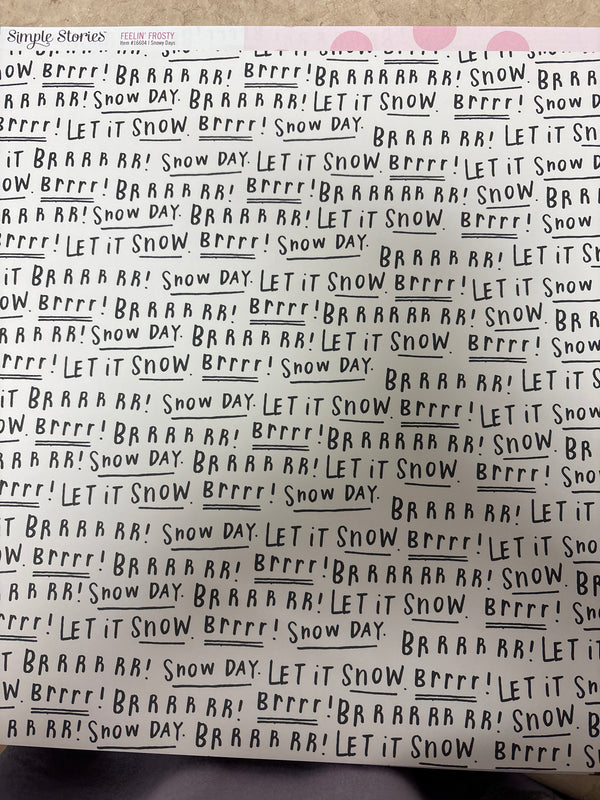 Simple Stories
FEELIN' FROSTY
Item #16604 | Snow Days
OW. Brrrr! BRRRR RR! Brrrr! BRRRRRR RR! SNOW. BRRR
RRR RR! Snow DAY. BRRRR RR! LET iT SNOW. Brrrr! Snow D
rrrr! LET iT SNOW. Brrrr! Snow DAY. BRRRR RR! LET iT SN
iT BRRRR RR! Snow DAY. LET iT SNOW. Brrrr! LET iT Snow D
OW. Brrrr! BRRRR RR! Brrrr! BRRRRRR RR! SNOW. BRR
RRR RR! Snow DAY. BRRRR RR! LET iT SNOW. Brrrr! Snow
rrrr! LET iT SNOW. Brrrr! Snow DAY. BRRRR RR! LET iT S
iT BRRRR RR! Snow DAY. LET iT SNOW. Brrrr! LET iT Snow
OW. Brrrr! BRRRR RR! Brrrr! BRRRRRR RR! SNOW. BRR
RRR RR! Snow DAY. BRRRR RR! LET iT SNOW. Brrrr! Snow
rrrr! LET iT SNOW. Brrrr! Snow DAY. BRRRR RR! LET iT S
iT BRRRR RR! Snow DAY. LET iT SNOW. Brrrr! LET iT Snow
OW. Brrrr! BRRRR RR! Brrrr! BRRRRRR RR! SNOW. BR
RRR RR! Snow DAY. BRRRR RR! LET iT SNOW. Brrrr! Sno
rrrr! LET iT SNOW. Brrrr! Snow DAY. BRRRR RR! LET iT
iT BRRRR RR! Snow DAY. LET iT SNOW. Brrrr! LET iT Sno
OW. Brrrr! BRRRR RR! Brrrr! BRRRRRR RR! SNOW. BR
RRR RR! Snow DAY. BRRRR RR! LET iT SNOW. Brrrr! Sn
rrrr! LET iT SNOW. Brrrr! Snow DAY. BRRRR RR! LET iT
T BRRRR RR! Snow DAY. LET iT SNOW. Brrrr! LET iT Sn
W. Brrrr! BRRRR RR! Brrrr! BRRRRRR RR! SNOW. B
RR RR! Snow DAY. BRRRR RR! LET iT SNOW. Brrrr! S